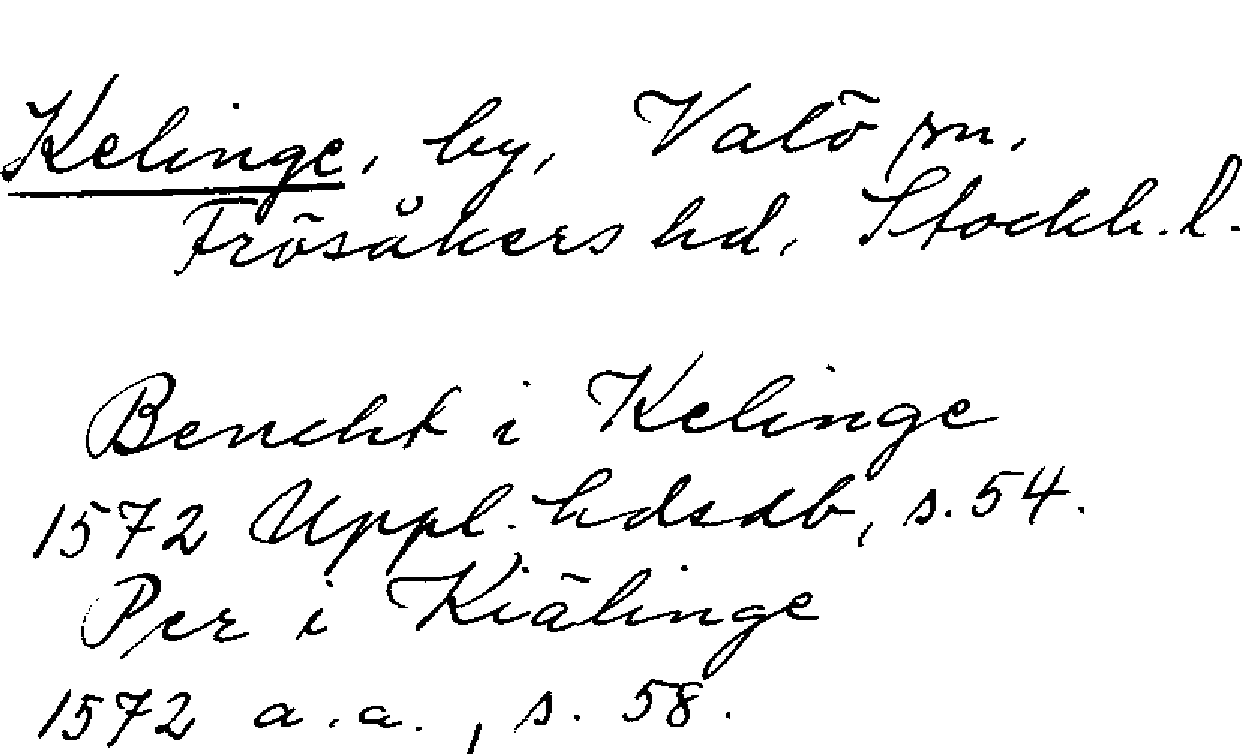 Kelinge, by, Valö sn,
Frösåkers hd, Stockh. l.
Bencht i Kelinge
1572 Uppl. hdsdb, s. 54.
Per i Kiälinge
1572 a.a., s. 58.